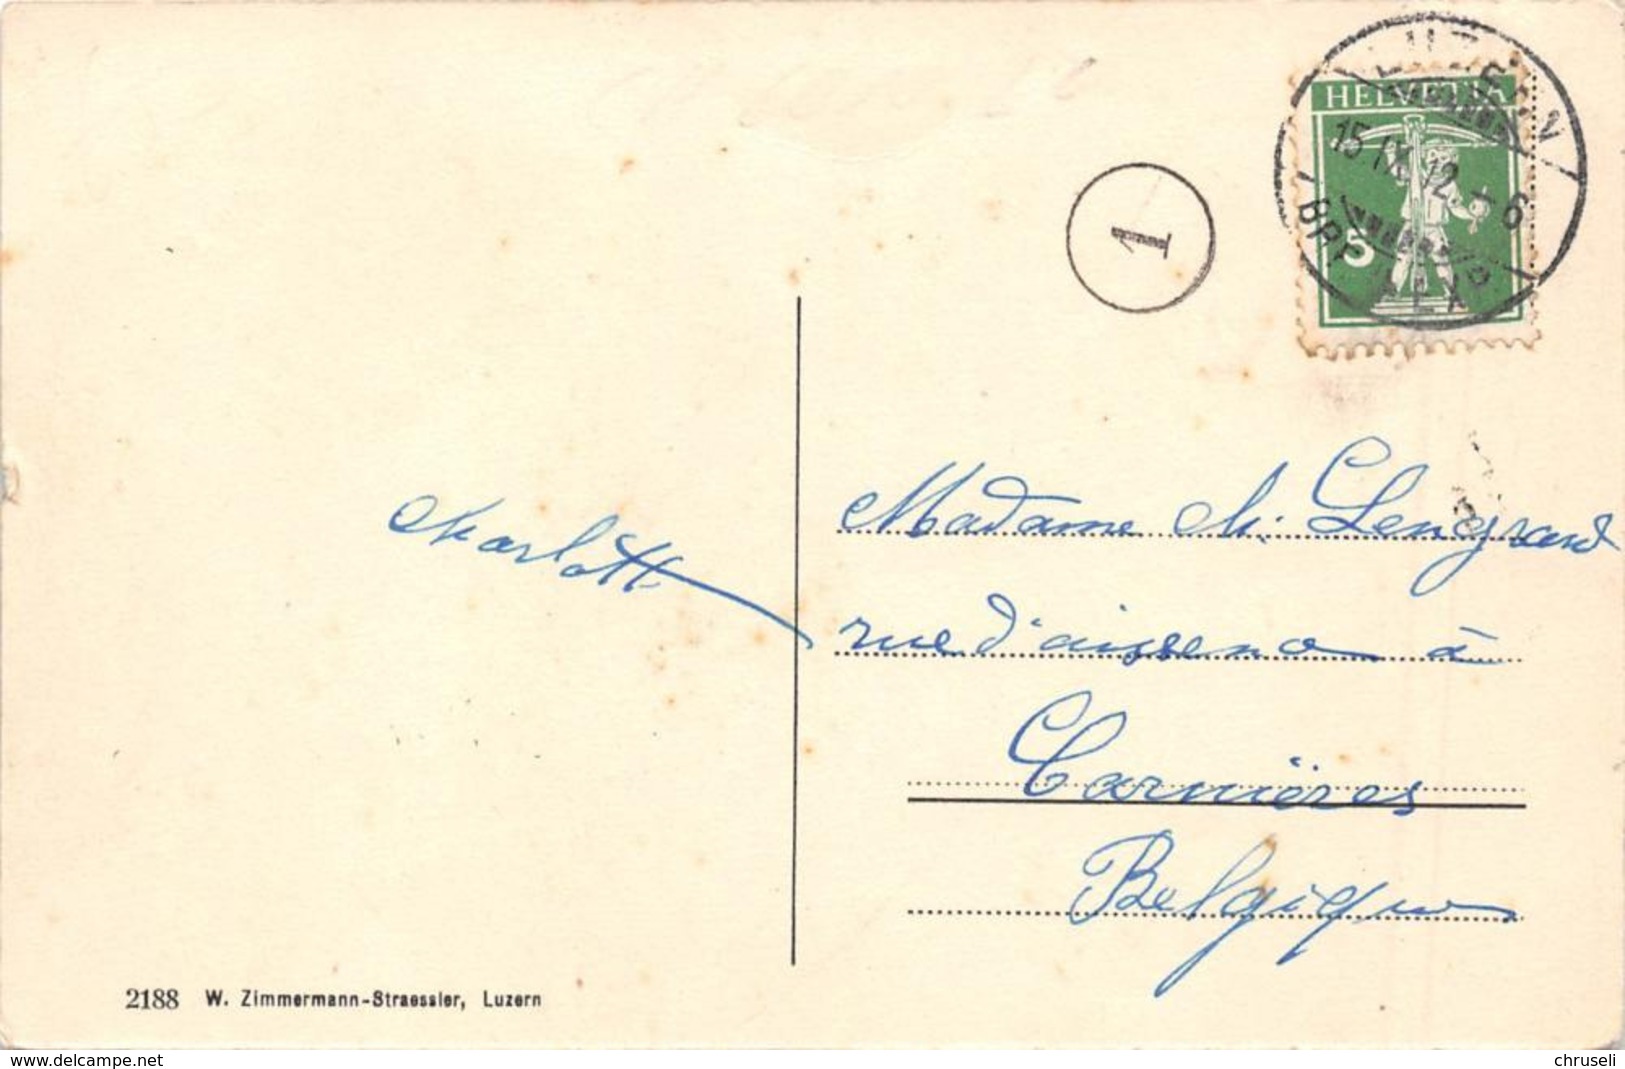 LUZERN
HELVETIA
15.IX.12.-6
5
1
Charlotte
Madame Ch. Lengrand
rue d'aiseno à
Carnières
Belgique
2188 W. Zimmermann-Straessler, Luzern
www.delcampe.net
chruseli